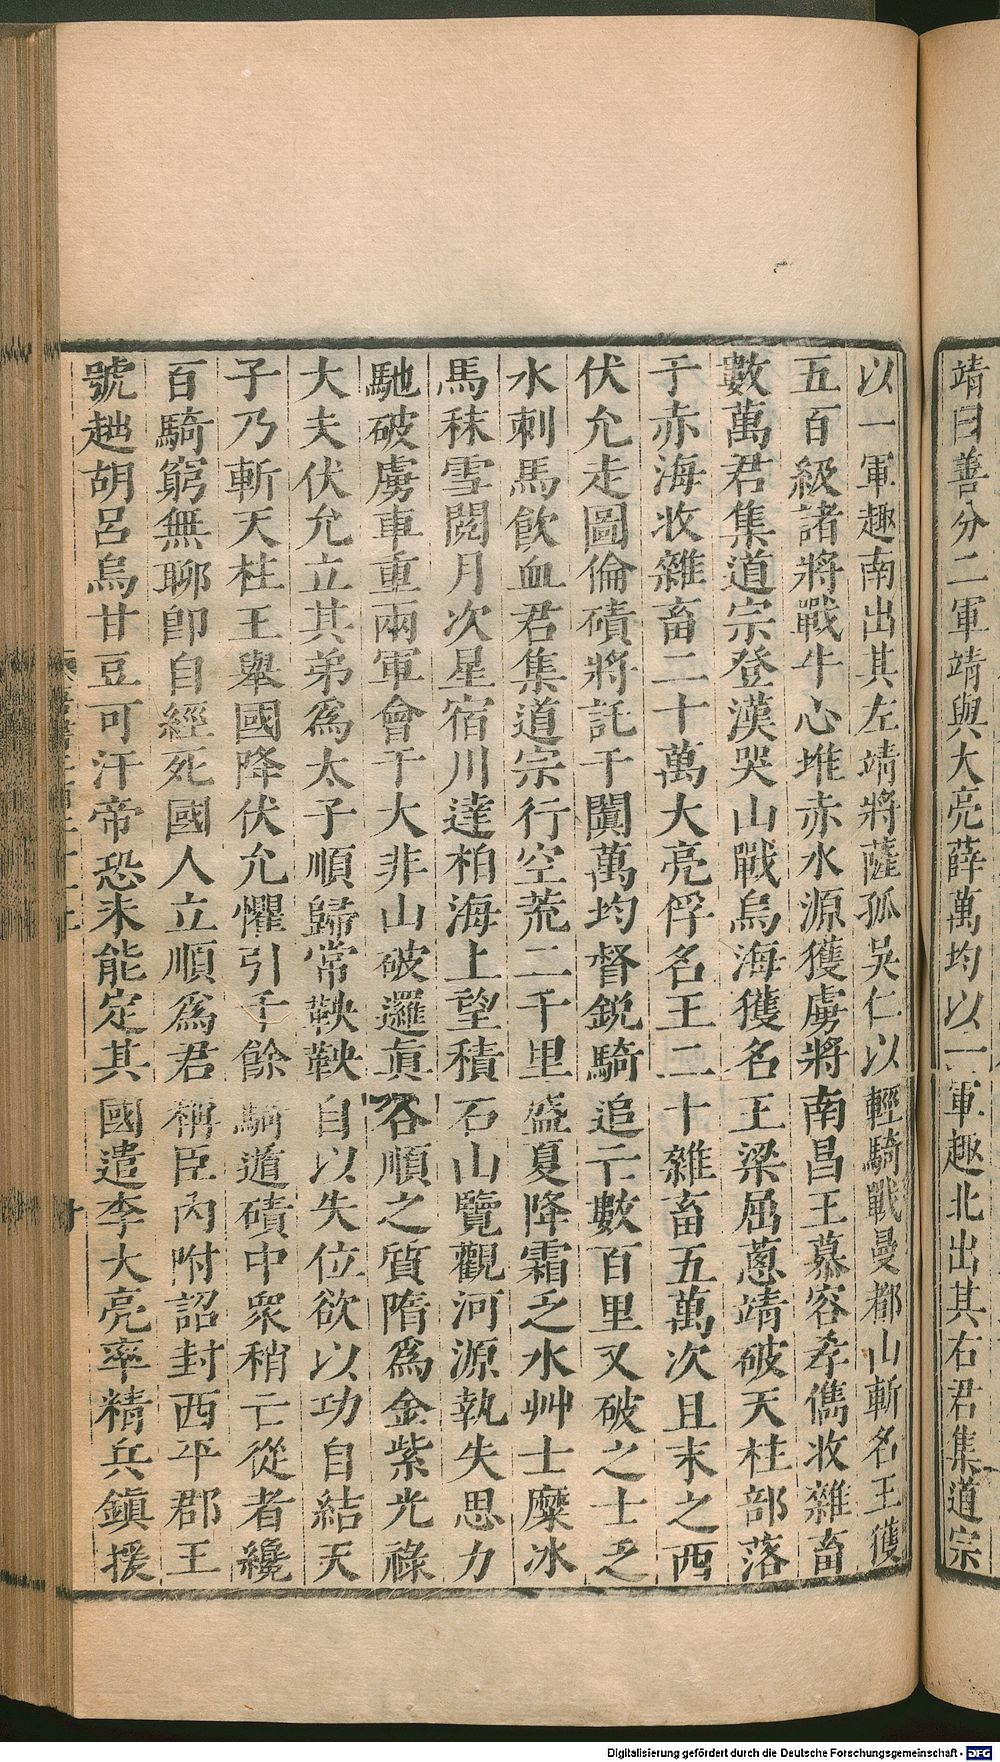 靖曰善分二軍靖與大亮薛萬均以一軍趣北出其右君集道宗
以一軍趣南出其左靖將薩孤吳仁以輕騎戰曼都山斬名王獲
五百級諸將戰牛心堆赤水源獲虜將南昌王慕容孝儁收雜畜
數萬君集道宗登漢哭山戰烏海獲名王梁屈蔥靖破天柱部落
于赤海收雜畜二十萬大亮俘名王二十雜畜五萬次且末之西
伏允走圖倫磧將託于闐萬均督銳騎追亡數百里又破之士乏
水刺馬飲血君集道宗行空荒二千里盛夏降霜乏水艸士糜冰
馬秣雪閱月次星宿川達柏海上望積石山覽觀河源執失思力
馳破虜車重兩軍會于大非山破邏眞谷順之質隋爲金紫光祿
大夫伏允立其弟爲太子順歸常鞅鞅自以失位欲以功自結天
子乃斬天柱王舉國降伏允懼引千餘騎遁磧中衆稍亡從者纔
百騎窮無聊卽自經死國人立順爲君稱臣內附詔封西平郡王
號趉胡呂烏甘豆可汗帝恐未能定其國遣李大亮率精兵鎮援
Digitalisierung gefördert durch die Deutsche Forschungsgemeinschaft - DFG